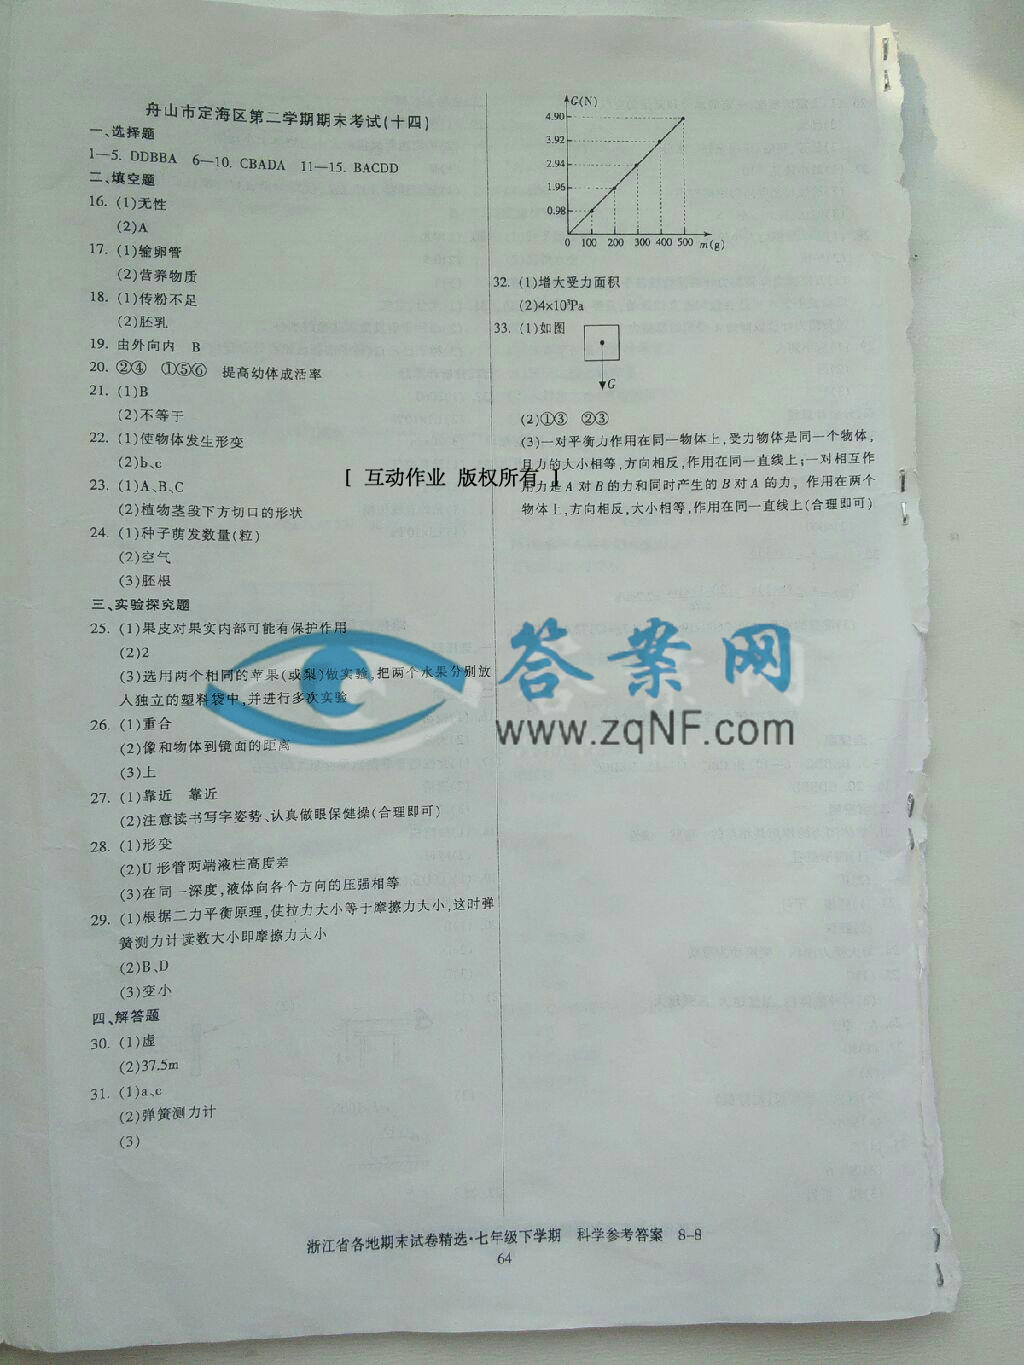 舟山市定海区第二学期期末考试(十四)
一、选择题
1—5. DDBBA 6—10. CBADA 11—15. BACDD
二、填空题
16. (1)无性
(2)A
17. (1)输卵管
(2)营养物质
18. (1)传粉不足
(2)胚乳
19. 由外向内 B
20. ②④ ①⑤⑥ 提高幼体成活率
21. (1)B
(2)不等于
22. (1)使物体发生形变
(2)b、c
23. (1)A、B、C
(2)植物茎段下方切口的形状
24. (1)种子萌发数量(粒)
(2)空气
(3)胚根
三、实验探究题
25. (1)果皮对果实内部可能有保护作用
(2)2
(3)选用两个相同的苹果(或梨)做实验,把两个水果分别放
入独立的塑料袋中,并进行多次实验
26. (1)重合
(2)像和物体到镜面的距离
(3)上
27. (1)靠近 靠近
(2)注意读书写字姿势、认真做眼保健操(合理即可)
28. (1)形变
(2)U形管两端液柱高度差
(3)在同一深度,液体向各个方向的压强相等
29. (1)根据二力平衡原理,使拉力大小等于摩擦力大小,这时弹
簧测力计读数大小即摩擦力大小
(2)B、D
(3)变小
四、解答题
30. (1)虚
(2)37.5m
31. (1)a、c
(2)弹簧测力计
(3)
G(N)
4.90
3.92
2.94
1.96
0.98
0 100 200 300 400 500 m(g)
32. (1)增大受力面积
(2)4×10³Pa
33. (1)如图
G
(2)①③ ②③
(3)一对平衡力作用在同一物体上,受力物体是同一个物体,
且力的大小相等,方向相反,作用在同一直线上;一对相互作
用力是A对B的力和同时产生的B对A的力, 作用在两个
物体上,方向相反,大小相等,作用在同一直线上(合理即可)
[ 互动作业 版权所有 ]
答案网
www.zqNF.com
浙江省各地期末试卷精选·七年级下学期 科学参考答案 8-8
64